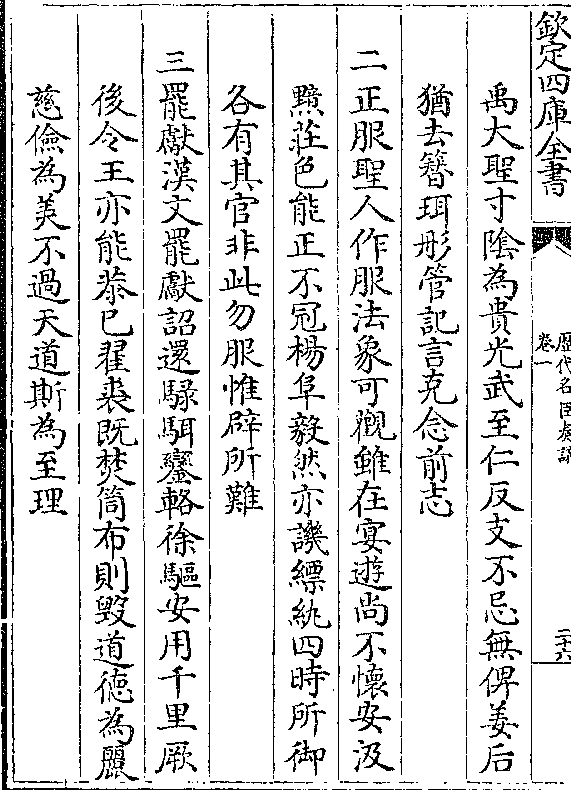 欽定四庫全書
歷代名臣奏議
卷一
二十六
禹大聖寸陰為貴光武至仁反支不忌無俾姜后
猶去簪珥彤管記言克念前志
二正服聖人作服法象可觀雖在宴遊尚不懷安汲
黯莊色能正不冠楊阜毅然亦譏縹紈四時所御
各有其官非此勿服惟辟所難
三罷獻漢文罷獻詔還騄駬鑾輅徐驅安用千里厥
後令王亦能恭巳翟裘既焚筒布則毀道徳為麗
慈儉為美不過天道斯為至理